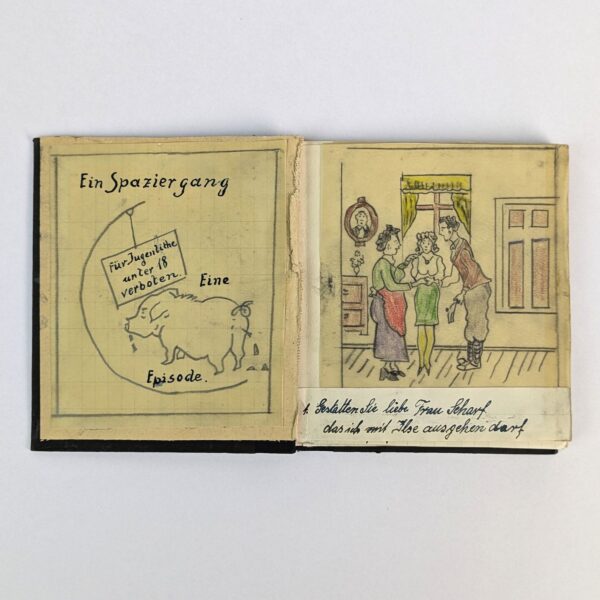 Ein Spaziergang
Für Jugentliche
unter 18
verboten.
Eine
Episode.
1. Gestatten Sie liebe Frau Scharf
das ich mit Ilse ausgehen darf